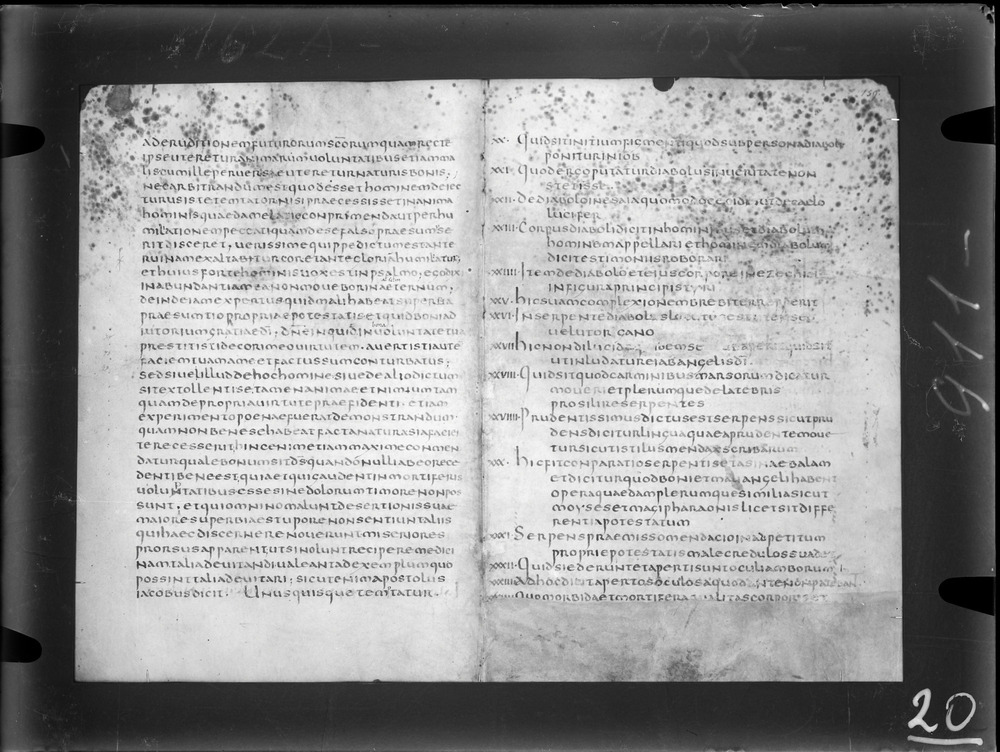 aderuditionem futurorum scorum quam recte
ipse uteretur animarum uoluntatibus etiam ma
lis cum ille peruerse uteretur naturis bonis;
neque arbitrandum est quod esset hominem deiec
turus iste temtator nisi praecessisset in anima
hominis quaedam elatio conprimenda ut per hu
miliationem peccati quam de se falso praesumse
rit disceret; uerissime quippe dictum est ante
ruinam exaltabitur cor et ante gloriam humiliatur;
et huius forte hominis uox est in psalmo; ego dixi
in abundantia mea non mouebor in aeternum;
deinde iam expertus quid mali habeat superba
praesumtio propriae potestatis et quid boni ad
iutorium gratiae di; dne inquid in uoluntate tua
prestitisti decori meo uirtutem; auertisti autem
faciem tuam a me et factus sum conturbatus;
sed siue illud de hoc homine siue de alio dictum
sit extollentis etamen animae et nimium tam
quam de propria uirtute praefidenti etiam
experimento poenae fuerat demonstrandum
quam non bene se habeat facta natura si a faciente
recesserit; hinc enim etiam maxime conmen
datur quale bonum sit ds quando nulli ab eo rece
denti bene est; quia et qui gaudent in mortiferis
uoluptatibus esse sine dolorum timore non pos
sunt; et qui omnino malum desertionis suae
maiore superbiae stupore non sentiunt aliis
qui haec discernere nouerunt miseriores
prorsus apparent; ut si nolunt recipere medici
nam talia deuitandi ualeant ad exemplum quo
possint talia deuitari; sicut enim apostolus
iacobus dicit. Unusquisque temtatur
159
xx. Quid sit initium figmenti quod sub persona diaboli
ponitur in iob
xxi. Quo dercputatur diabolus in ueritate non
stetisse
xxii. De diabolo in esaia quomodo cecidit de caelo
lucifer
xxiii. Corpus diaboli dici in hominibus et diabolum
hominem appellari et hominem diabolum
dici testimoniis roborari
xxiiii. Item de diabolo et eius corpore in ezechiel
in figura principis tyri
xxv. hic suam complexionem breuiter
xxvi. In serpente diabolus locutus est
uelut organo
xxvii. hic non dilucida
utinludaturei ab angelis di
xxviii. Quid sit quod carminibus marsorum dicatur
moueri et plerumque de latebris
prosilire serpentes
xxviiii. Prudentissimus dictus est serpens sicut pru
dens dicitur lingua quae a prudente moue
tur sicut stilus mendax scribarum
xxx. hic fit conparatio serpentis et asinae balam
et dicitur quod boni et mali angeli habent
opera quaedam plerumque similia sicut
moyses et magi pharaonis licet sit diffe
rentia potestatum
xxxi. Serpens praemisso mendacio in adpetitum
proprie potestatis male credulos suadet
xxxii. Quid sit ederunt et aperti sunt oculi amborum
xxxiii. Ad hoc dici apertos oculos a quod ante non patebant
xxxiiii. Quo morbida et mortifera qualitas corporis et
911-
20